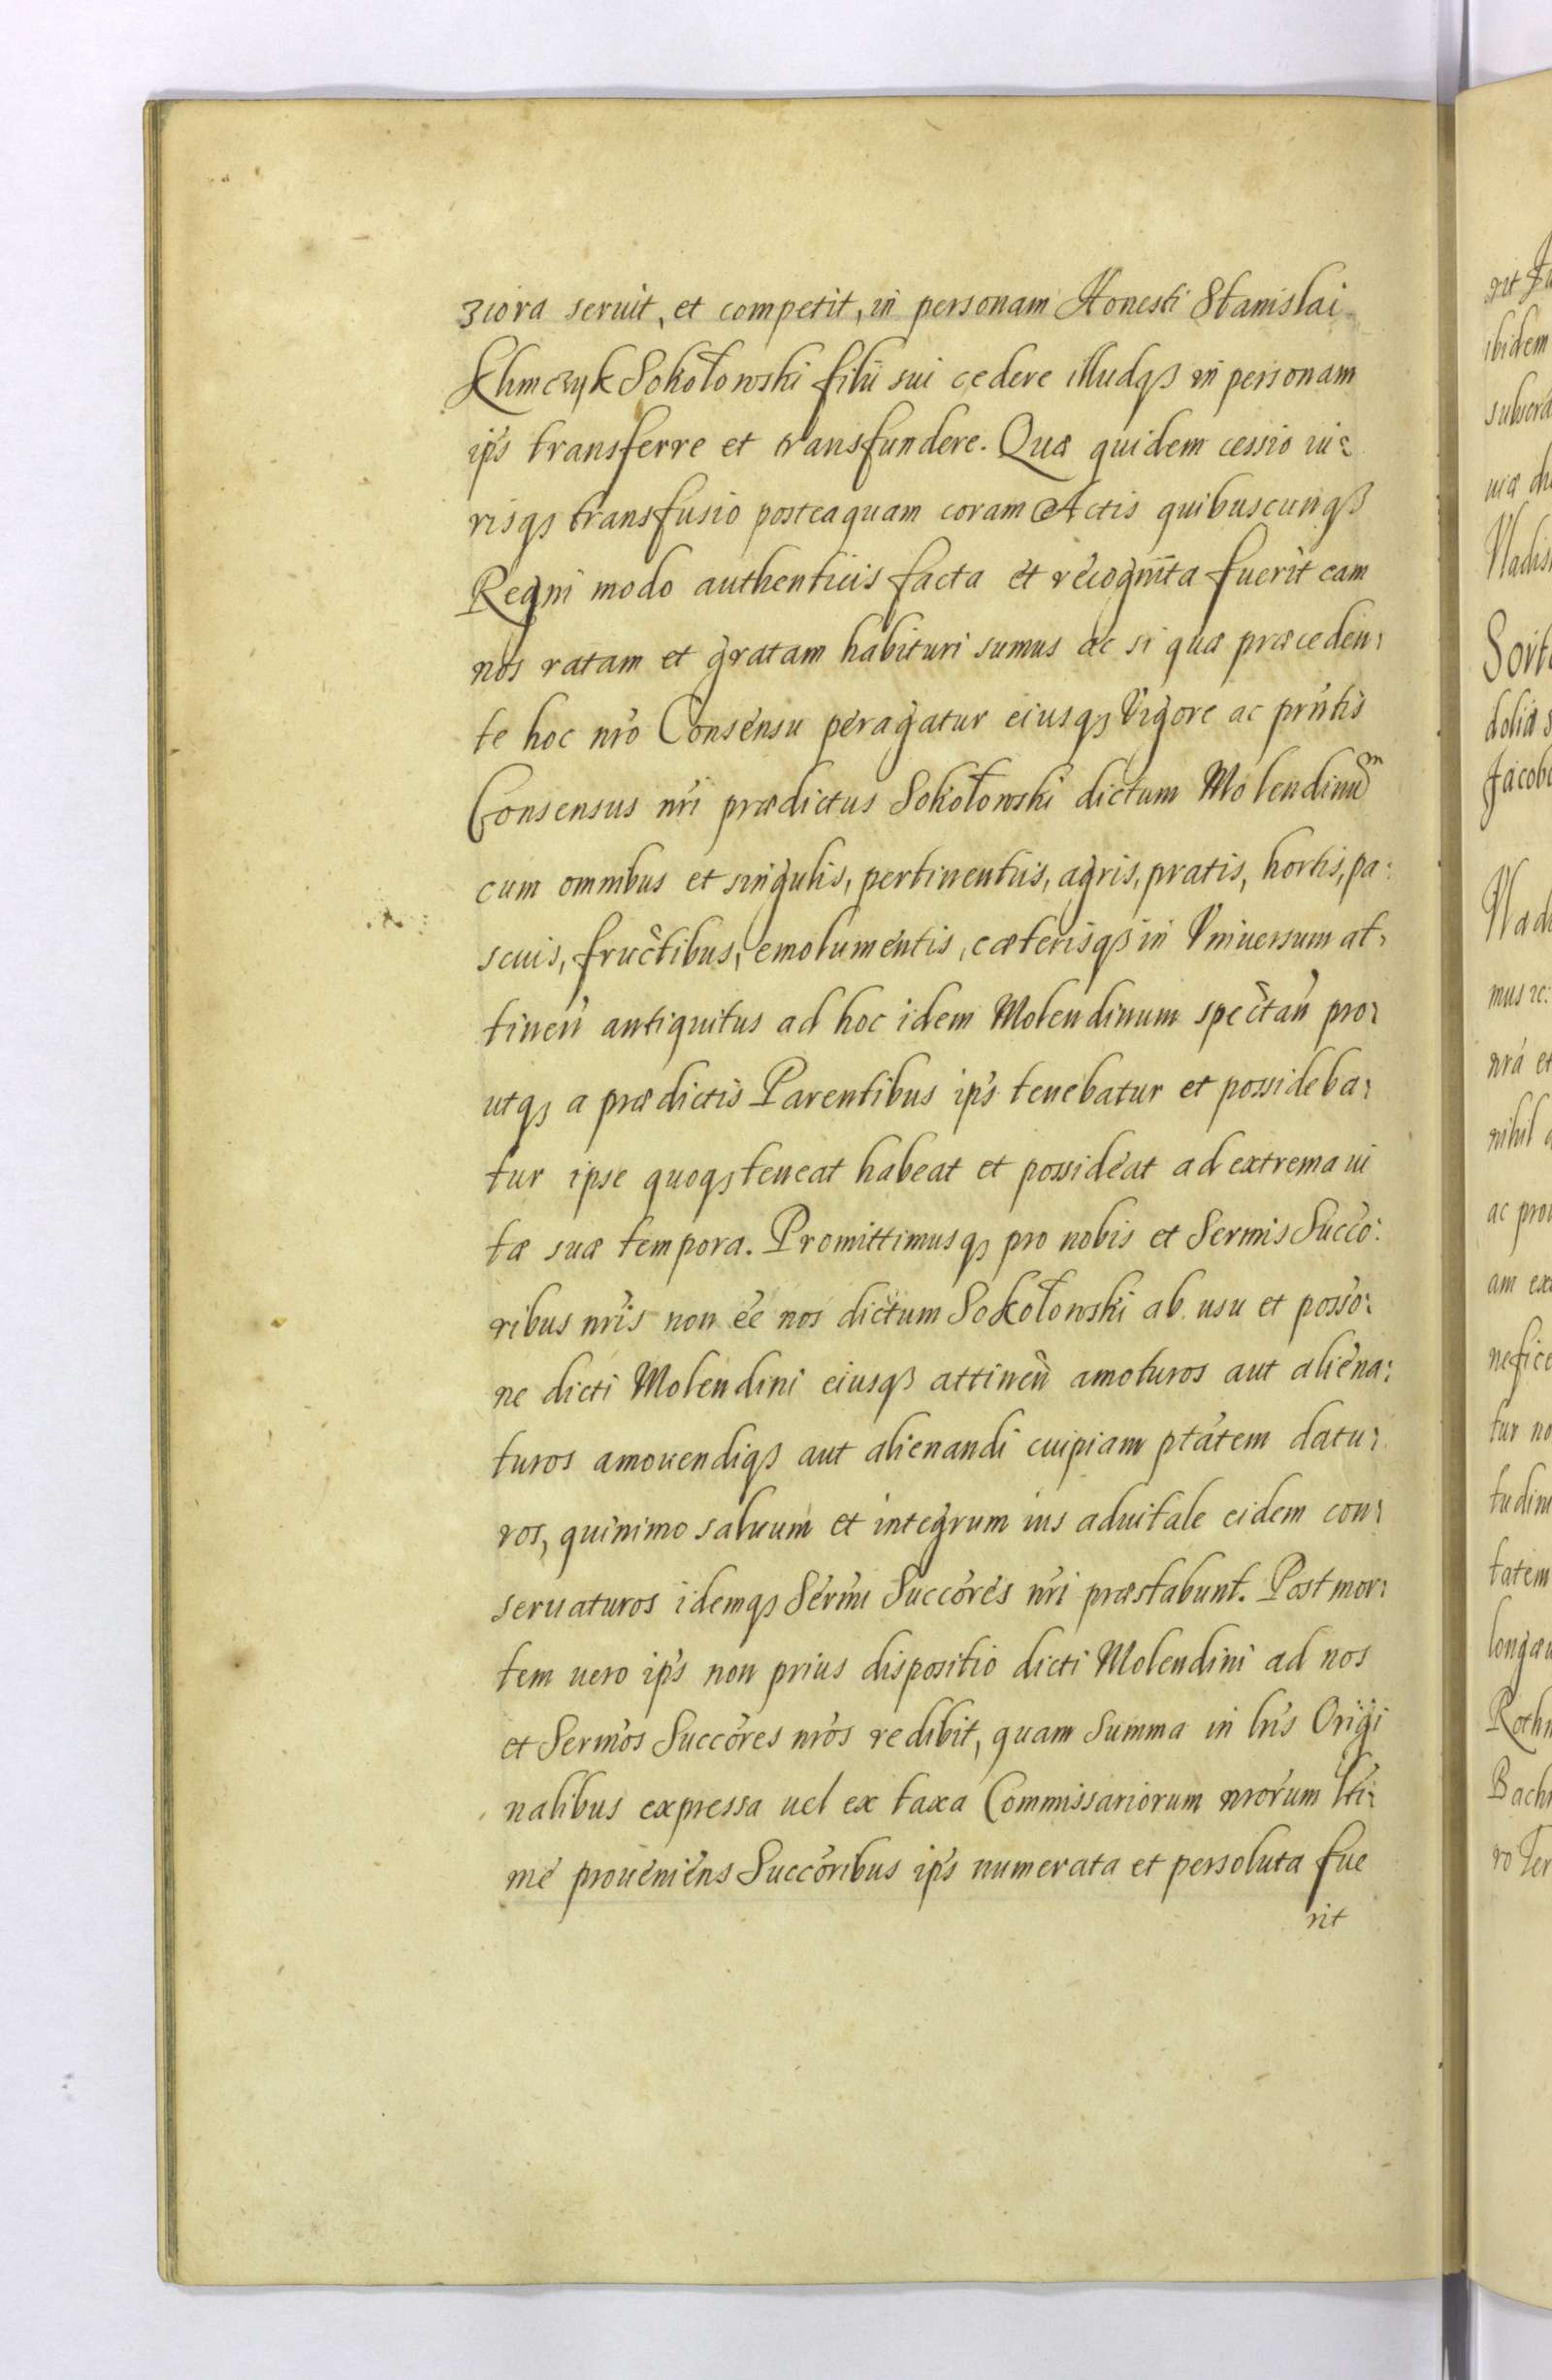 ziora seruit, et competit, in personam Honesti Stanislai
Klimczyk Sokołowski filii sui cedere illudqȝ in personam
ips transferre et transfundere. Quæ quidem cessio iu:
risqȝ transfusio posteaquam coram Actis quibuscunqȝ
Regni modo authenticis facta et recognita fuerit eam
nos ratam et gratam habituri sumus ac si quæ præceden:
te hoc nr̃o Consensu peragatur eiusqȝ Vigore ac prn̄tis
Consensus nr̃i prædictus Sokołowski dictum Molendinum
cum omnibus et singulis, pertinentiis, agris, pratis, hortis, pa:
scuis, fructibus, emolumentis, cæterisqȝ in Vniuersum at:
tinen̄ antiquitus ad hoc idem Molendinum spectan̄ pro:
utqȝ a prædictis Parentibus ips tenebatur et possideba:
tur ipse quoqȝ teneat habeat et possideat ad extrema ui
tæ suæ tempora. Promittimusqȝ pro nobis et Sermis Succo:
ribus nr̃is non ēe nos dictum Sokołowski ab usu et posso:
ne dicti Molendini eiusqȝ attinen̄ amoturos aut aliena:
turos amouendiqȝ aut alienandi cuipiam ptātem datu:
ros, quinimo saluum et integrum ius aduitale eidem con:
seruaturos idemqȝ Sermi Succōres nr̃i præstabunt. Post mor:
tem uero ips non prius dispositio dicti Molendini ad nos
et Sermos Succōres nr̃os redibit, quam Summa in lr̃is Origi
nalibus expressa uel ex taxa Commissariorum nr̃orum ltĩ:
me proueniens Succōribus ips numerata et persoluta fue
rit